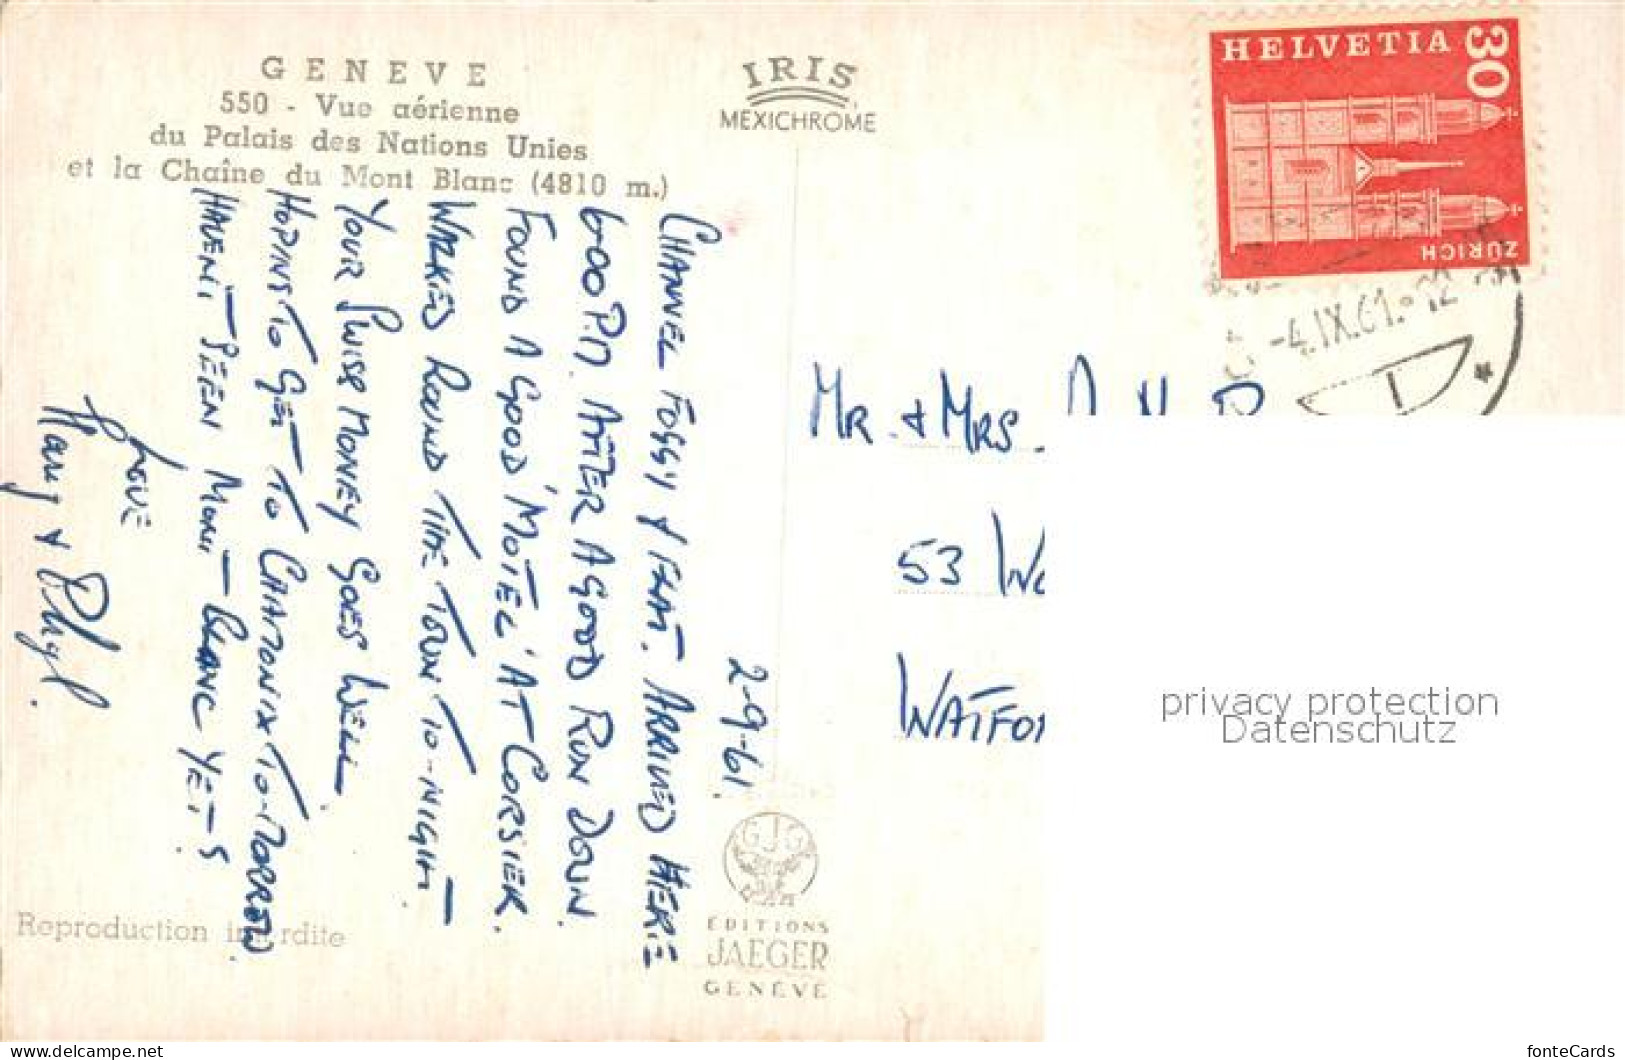 GENEVE
550 - Vue aérienne
du Palais des Nations Unies
et la Chaîne du Mont Blanc (4810 m.)
IRIS
MEXICHROME
HELVETIA 30
ZÜRICH
-4.IX.61.
2-9-61.
CHANNEL FOGGY & FLAT. ARRIVED HERE
6.00 P.M. AFTER A GOOD RUN DOWN.
FOUND A GOOD 'MOTEL' AT CORSIER.
WALKED ROUND THE TOWN TO-NIGHT.
YOUR SWISS MONEY GOES WELL.
HOPING TO GET TO CHAMONIX TO-MORROW.
HAVEN'T SEEN MONT-BLANC YET
LOVE
Harry & Phyl.
MR. & MRS.
53
WATFO
ÉDITIONS
JAEGER
GENÈVE
Reproduction interdite
privacy protection
Datenschutz
fonteCards